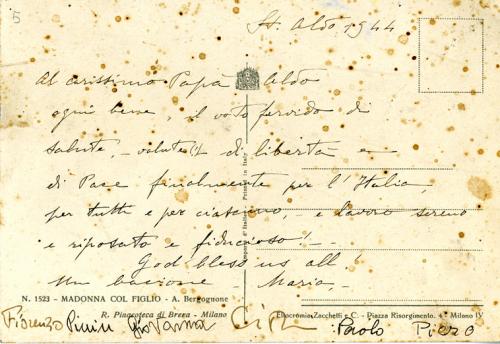 5
St. Aldo 1944
Al carissimo Papà Aldo
ogni bene, il voto fervido di
salute, - valute(!) di libertà e
di Pace finalmente per l'Italia,
per tutti e per ciascuno, - e lavoro sereno
e riposato e fiducioso! -
God bless us all!
Un bacione - Maria -
Printed in Italy
N. 1523 – MADONNA COL FIGLIO - A. Bergognone
R. Pinacoteca di Brera - Milano
Eliocromia Zacchetti e C. - Piazza Risorgimento, 4 - Milano IV
Fiorenzo Pinin Giovanna Paolo Piero